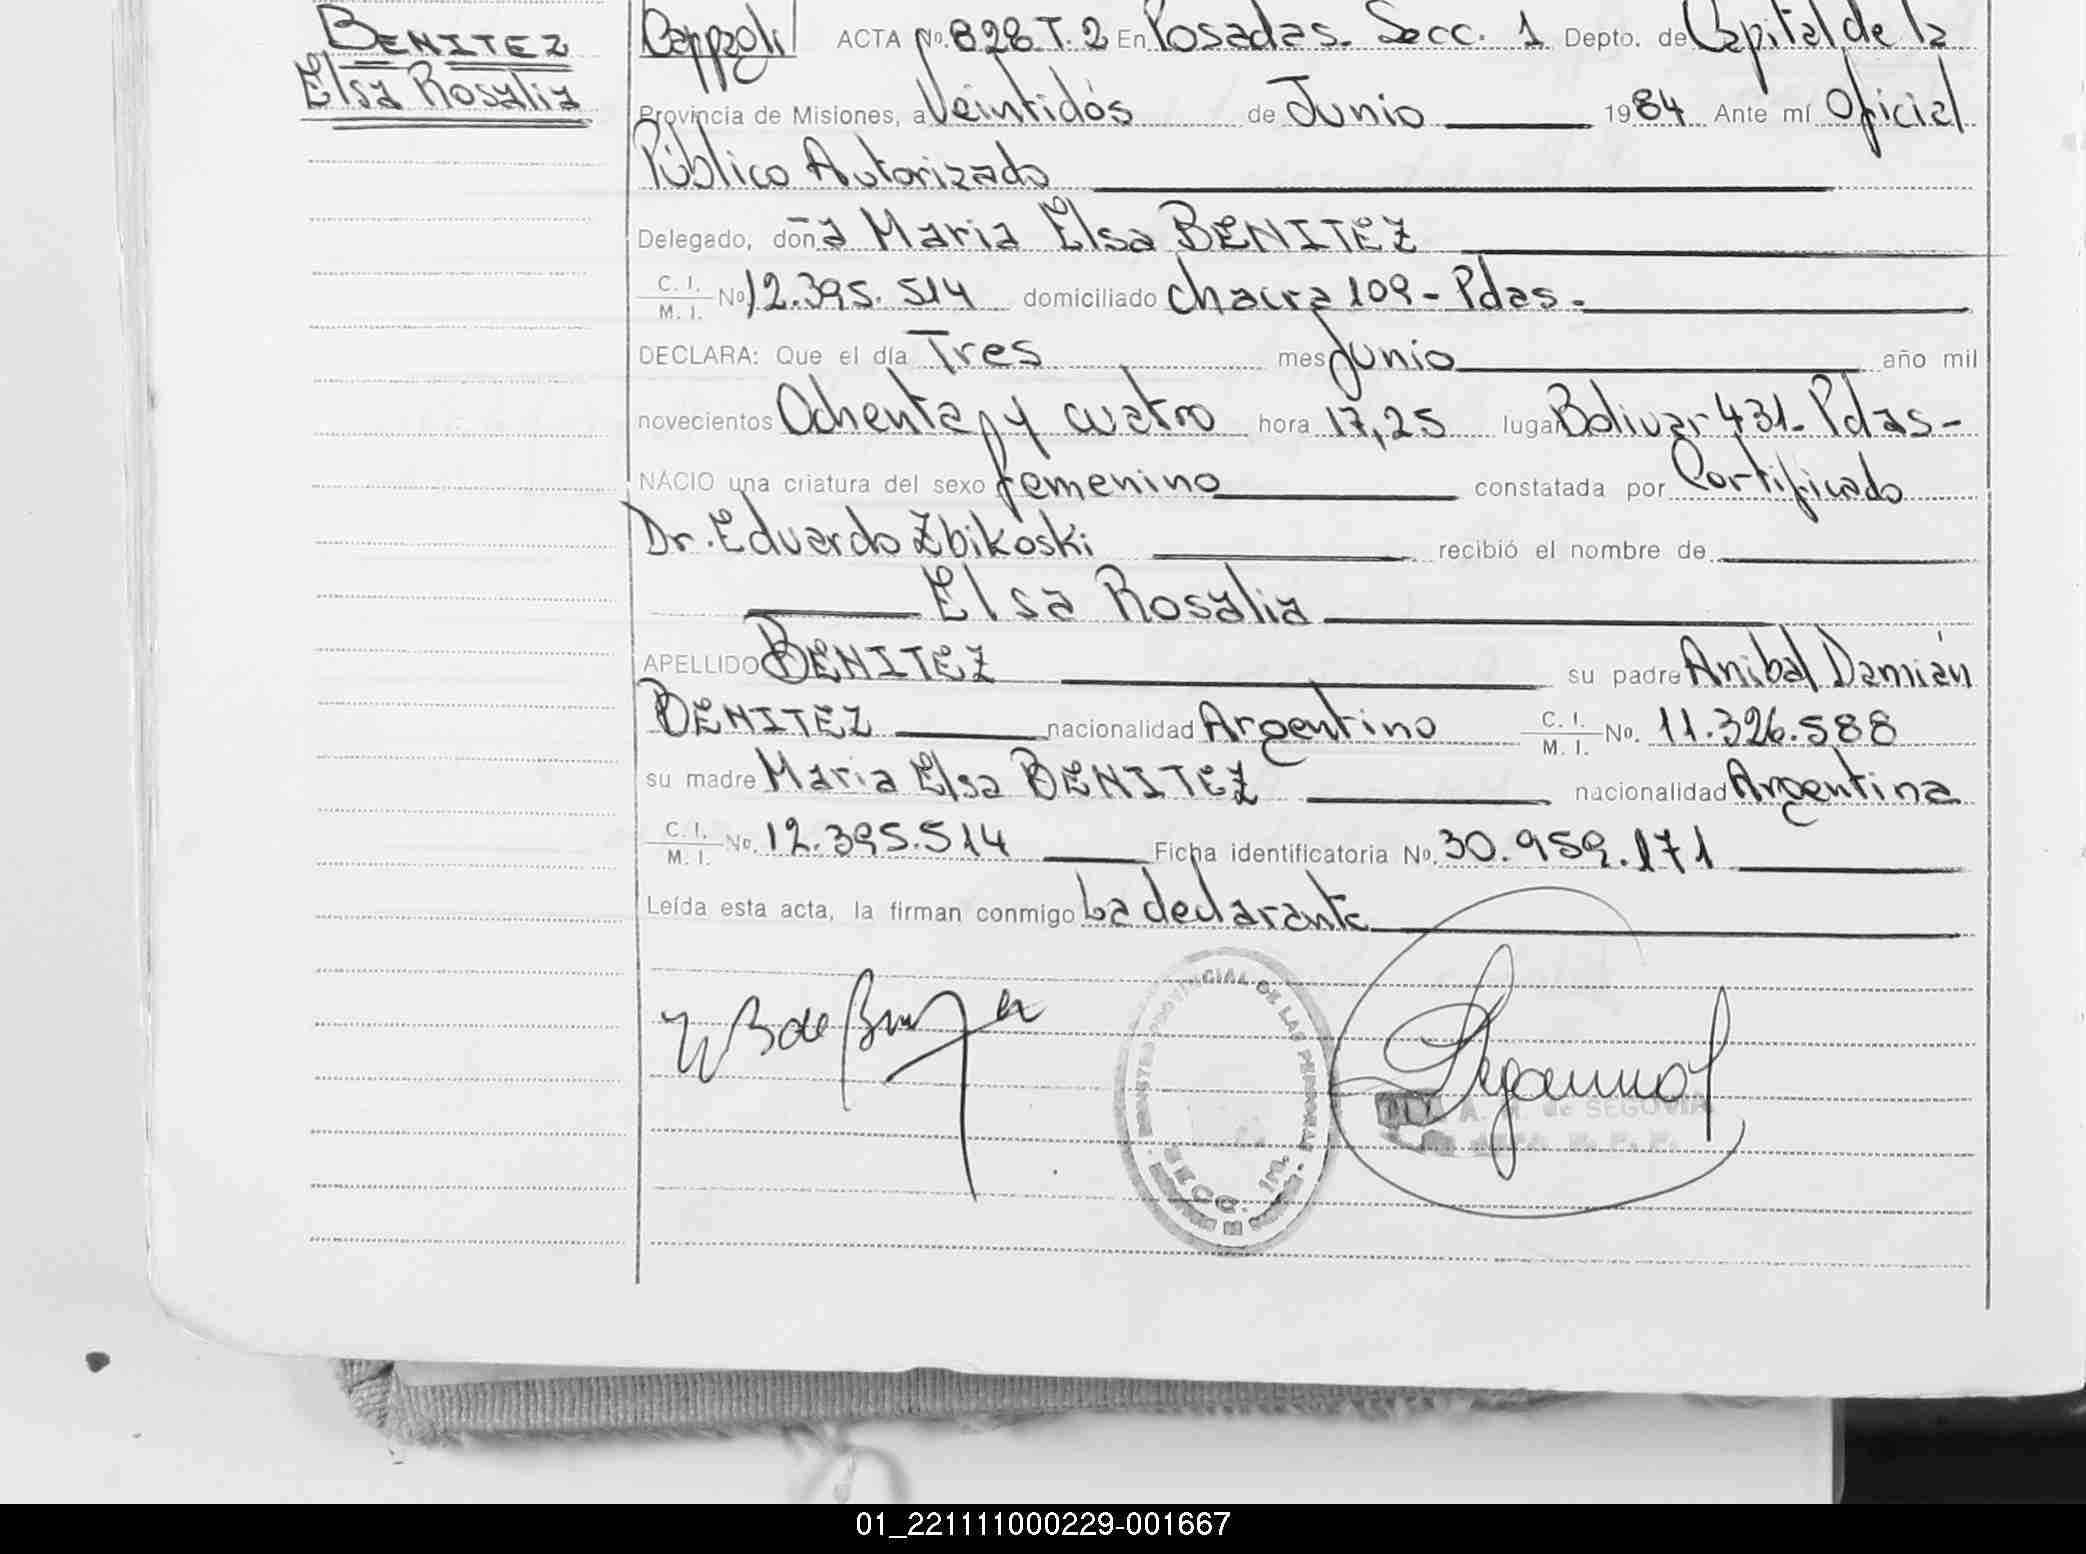 BENITEZ
Elsa Rosalia
ACTA No. 828 T. 2 En Posadas. Secc. 1 Depto. de Capital de la
Provincia de Misiones, a Veintidós de Junio 1984 Ante mí Oficial
Público Autorizado
Delegado, don̄a Maria Elsa BENITEZ
C. I.
M. I. No 12.395.514 domiciliado chacra 109 - Pdas.-
DECLARA: Que el día Tres mes Junio año mil
novecientos Ochenta y cuatro hora 17,25 lugar Bolivar 431- Pdas-
NACIO una criatura del sexo femenino constatada por Certificado
Dr. Eduardo Zbikoski recibió el nombre de
Elsa Rosalia
APELLIDO BENITEZ su padre Anibal Damián
BENITEZ nacionalidad Argentino C. I.
M. I. No. 11.326.588
su madre Maria Elsa BENITEZ nacionalidad Argentina
C. I.
M. I. No. 12.395.514 Ficha identificatoria No. 30.959.171
Leída esta acta, la firman conmigo La declarante
PROVINCIAL DE LAS PERSONAS
SECC. 1a.
A. de SEGOVIA
01_221111000229-001667